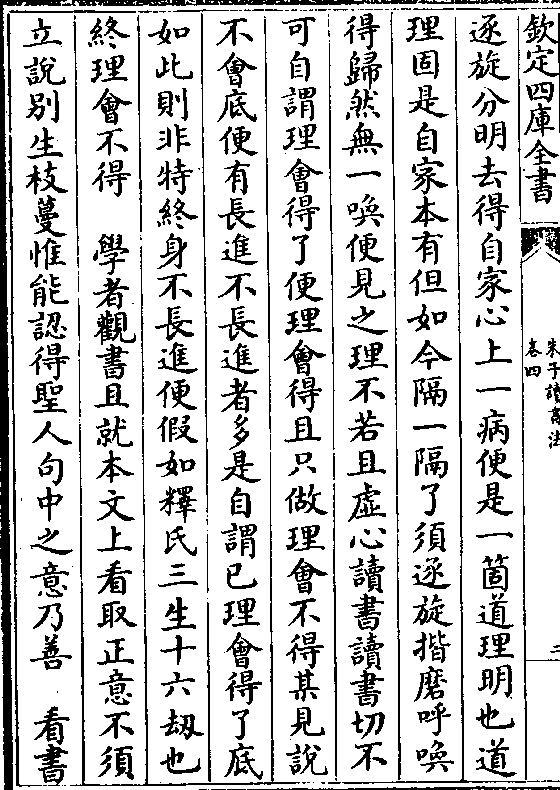 欽定四庫全書
朱子讀書法
卷四
三
逐旋分明去得自家心上一病便是一箇道理明也道
理固是自家本有但如今隔一隔了須逐旋揩磨呼喚
得歸然無一喚便見之理不若且虛心讀書讀書切不
可自謂理會得了便理會得且只做理會不得某見說
不會底便有長進不長進者多是自謂已理會得了底
如此則非特終身不長進便假如釋氏三生十六劫也
終理會不得　學者觀書且就本文上看取正意不須
立說别生枝蔓惟能認得聖人句中之意乃善　看書